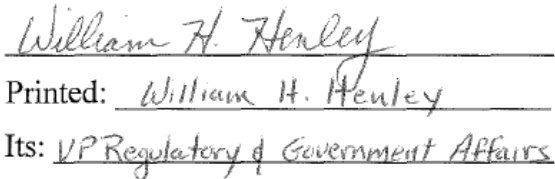 William H. Henley
Printed: William H. Henley
Its: VP Regulatory & Government Affairs